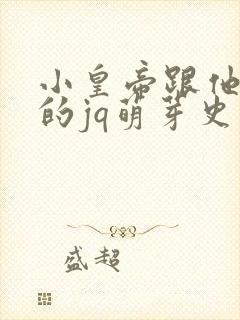 小皇帝跟他
的jq萌芽史
盛超